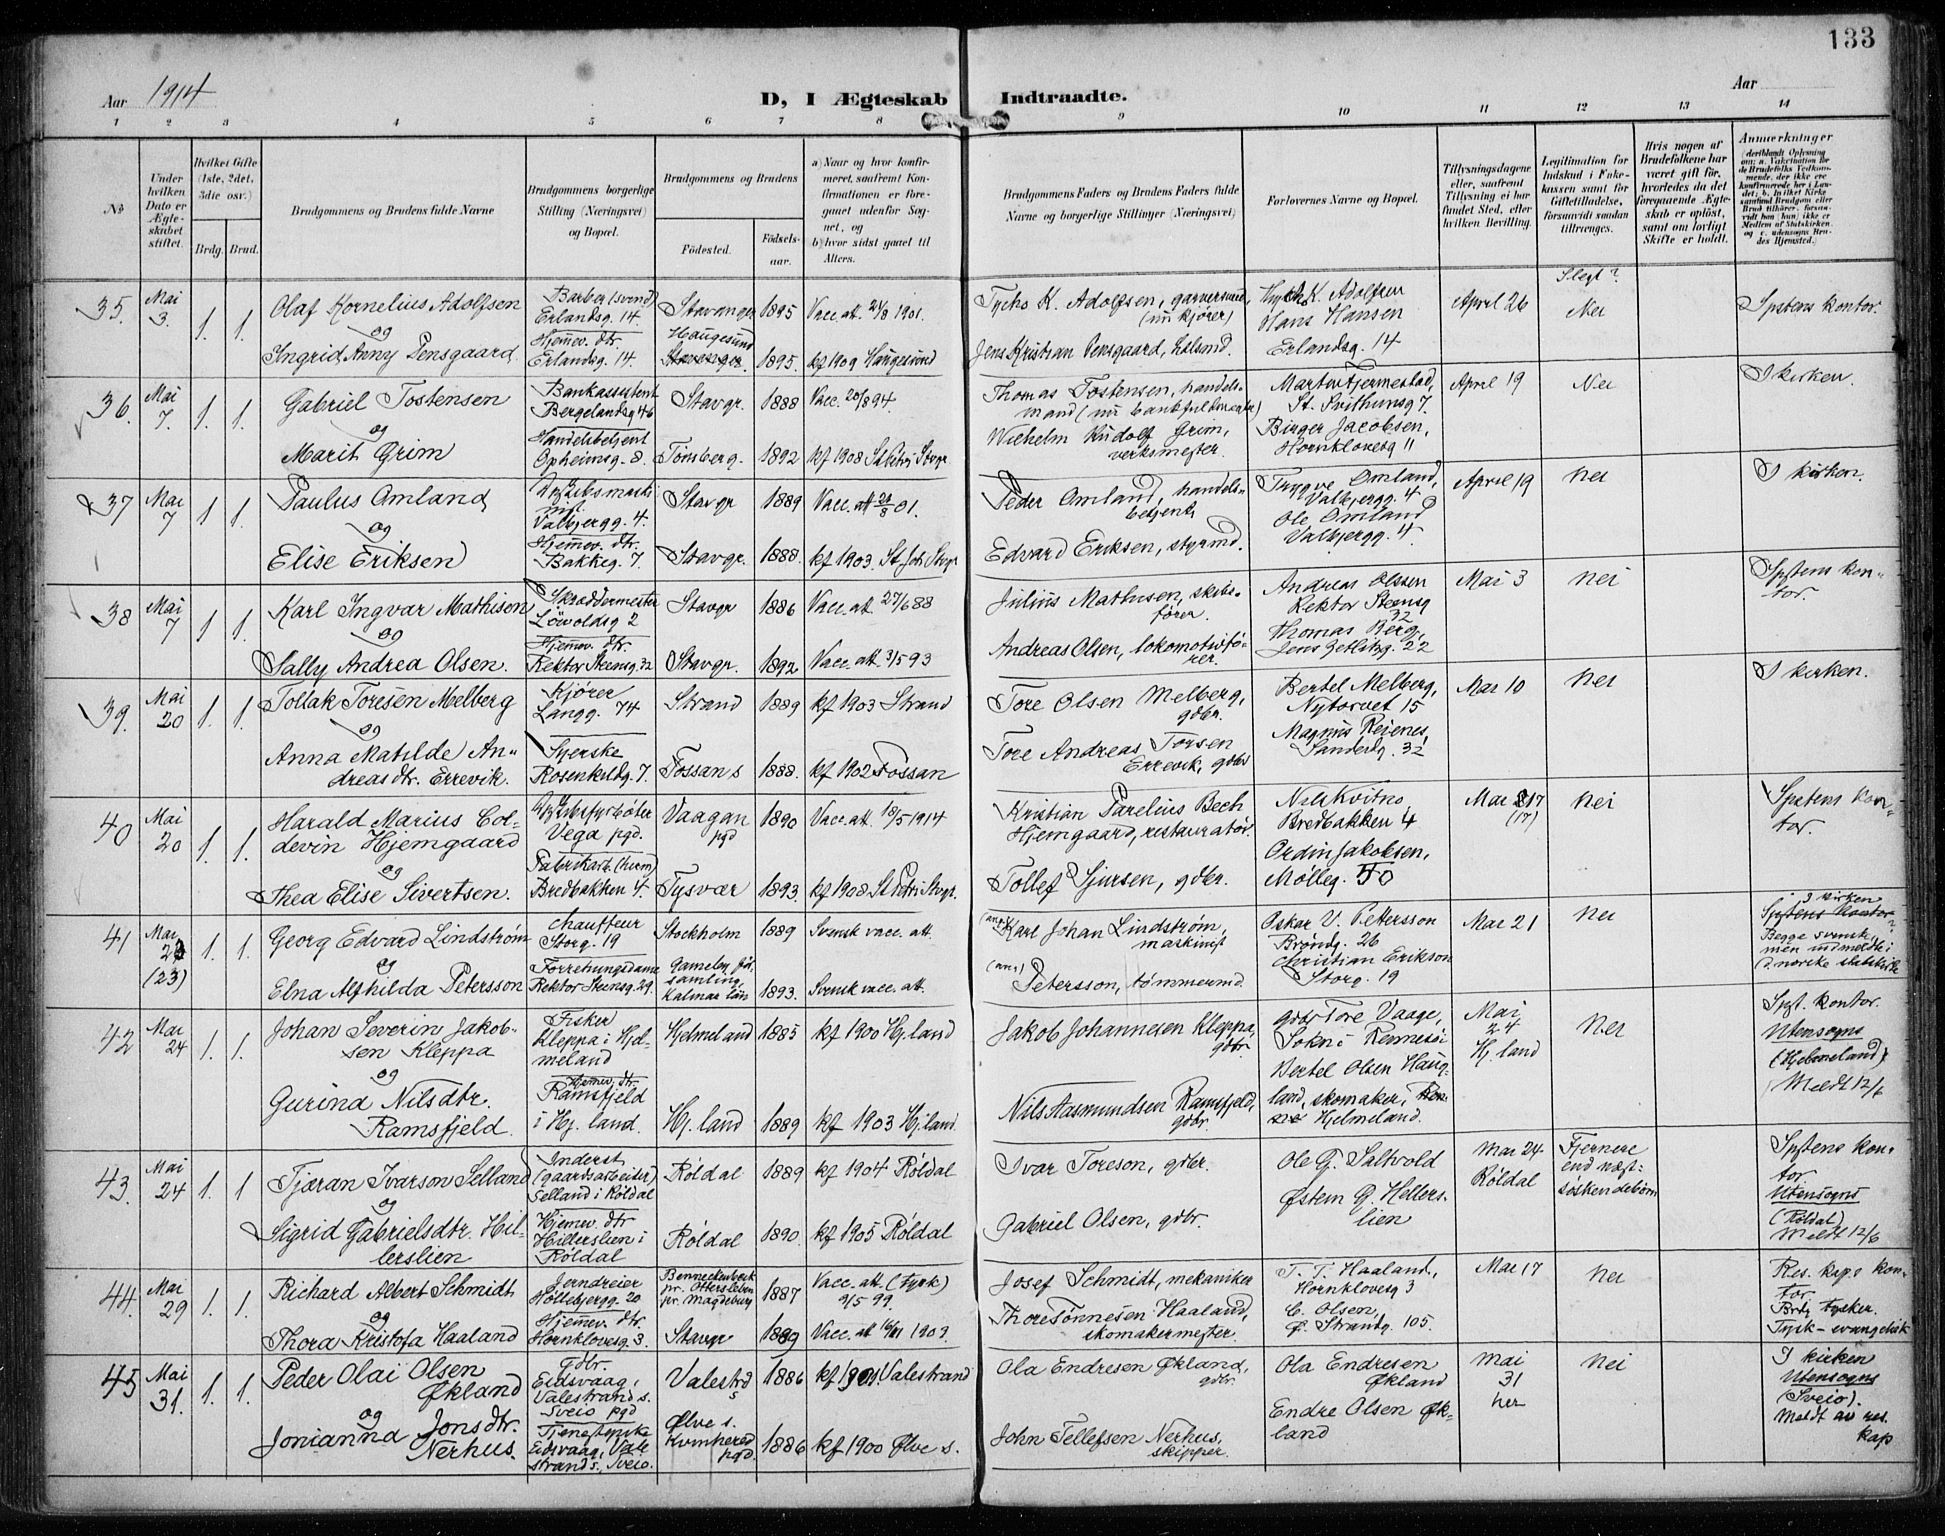 133
Aar 1914
D, I Ægteskab Indtraadte.
Aar
1 2 3 4 5 6 7 8 9 10 11 12 13 14
No
Under hvilken Dato er Ægteskabet stiftet.
Hvilket Gifte (1ste, 2det, 3die osv.)
Brdg. Brud.
Brudgommens og Brudens fulde Navne
Brudgommens borgerlige Stilling (Næringsvei) og Bopæl.
Brudgommens og Brudens
Fødested.
Fødselsaar.
a) Naar og hvor konfirmeret, saafremt Konfirmationen er foregaaet udenfor Sognet, og
b) hvor sidst gaaet til Alters.
Brudgommens Faders og Brudens Faders fulde Navne og borgerlige Stillinger (Næringsvei)
Forlovernes Navne og Bopæl.
Tillysningsdagene eller, saafremt Tillysning ei har fundet Sted, efter hvilken Bevilling.
Legitimation for Indskud i Enkekassen samt for Giftetilladelse, forsaavidt saadan tiltrænges.
Hvis nogen af Brudefolkene har været gift før, hvorledes da det foregaaende Ægteskab er opløst, samt om lovligt Skifte er holdt.
Anmerkninger
35. Mai 3. 1. 1.
Olaf Kornelius Adolfsen
og
Ingrid Anny Pensgaard
Barber (svend)
Erlandsg. 14
Hjemev. dtr.
Erlandsg. 14.
Stavangr. 1895 Vacc. att. 24/8 1901.
Haugesund 1895. kf 1909 Haugesund
Tycho K. Adolfsen, garversvend, (nu kjører)
Jens Kristian Pensgaard
Tycho K. Adolfsen
Hans Hansen
Erlandsg. 14
April 26
Slegt?
Nei
Spstens kontor.
36. Mai 7. 1. 1.
Gabriel Tostensen
og
Marit Grim
Bankassistent
Bergelandsg 46
Handelsbetjent
Opheimsg. 8.
Stavgr. 1888 Vacc. 20/8 94.
Tønsberg. 1892 kf 1908 St Petri Stvgr.
Thomas Tostensen, handelsmand
Wilhelm Rudolf Grim, verksmester.
Martin Fjermestad,
St. Svithunsg 7.
Birger Jacobsen,
Hornklovesg 11
April 19
Nei
I kirken.
37 Mai 7 1 1.
Paulus Omland
og
Elise Eriksen
Valbjergg. 4.
Hjemev. dtr.
Bakkeg. 7.
Stavgr 1889 Vacc. att 01.
Stavgr. 1888. kf 1903. St Joh. Stvgr
Peder Omland, handelsbetjent
Edvard Eriksen, styrmd.
Trygve Omland,
Valbjergg. 4
Ole Omland
Valbjergg. 4.
April 19
Nei
I kirken.
38 Mai 7 1 1.
Karl Ingvar Mathisen
og
Sally Andrea Olsen.
Skræddermester
Løvoldsg 2
Hjemev. dtr.
Rektor Steensg. 32
Stavgr 1886 Vacc. att. 27/6 88
Stavgr. 1892 Vacc. att. 3/5 93
Julius Mathisen, skibsfører.
Andreas Olsen, lokomotivfører.
Andreas Olsen
Rektor Steensg 32
Thomas Berg,
Jens Zetlitzg. 22
Mai 3
Nei
Spstens kontor.
39. Mai 20 1. 1.
Tollak Toresen Melberg
og
Anna Matilde Andreasdtr. Errevik.
Kjører
Langg. 74
Syerske
Rosenkildg. 7.
Strand 1889 kf 1903 Strand
Fossan s 1888. kf 1902 Fossan
Tore Olsen Melberg, gdbr.
Tore Andreas Torsen Errevik, gdbr
Bertel Melberg,
Nytorvet 15
Magnus Reienes,
Sandesdg. 32
Mai 10
Nei
I kirken.
40 Mai 20 1. 1.
Harald Marius Coldevin Hjemgaard
og
Thea Elise Sivertsen.
Vega pgd.
Fabrikarb. (herm)
Bredbakken 4.
Vaagan pgd 1890 Vacc. att. 18/5 1914
Tysvær 1893. kf 1908. St Petri Stvgr.
Kristian Parelius Bech Hjemgaard, restauratør.
Tollef Sjursen, gdbr.
Nils Kvitno,
Bredbakken 4
Ordin Jakobsen,
Mølleg. 50
Mai 17
(17)
Nei
Spstens kontor.
41 Mai 23 (23) 1. 1.
Georg Edvard Lindstrøm
og
Elna Alfhilda Petersson
Chauffeur
Storg. 19
Forretningsdame
Rektor Steensg. 29.
Stockholm 1889 Svensk vacc. att.
Gameleby församling
Kalmar län 1893. Svensk vacc. att.
(ang.) Karl Johan Lindstrøm, maskinist
(ang.) Petersson, tømmermd.
Oskar V. Petersson
Brøndg. 26
Christian Erikson
Storg. 19
Mai 21
Nei
I kirken
Spstens kontor
Begge svenske,
men indmeldte i
d. norske statskirke
42 Mai 24 1. 1.
Johan Severin Jakobsen Kleppa
og
Gurina Nilsdtr. Ramsfjeld.
Fisker
Kleppa i Hjelmeland
Hjemev. dtr.
Ramsfjeld
i Hj. land.
Hjelmeland 1885 kf 1900 Hj. land
Hj. land 1889 kf 1903 Hj. land.
Jakob Johannesen Kleppa, gdbr.
Nils Aasmundsen Ramsfjeld, gdbr.
gdbr Tore Vaage,
Sokn i Rennesøi
Bertel Olsen Haugland, skomaker, Hjelmeland.
Mai 24
Hj. land
Nei
Spst. kontor.
Utensogns
(Hjelmeland)
Meldt 12/6
43. Mai 24 1. 1
Tjæran Ivarson Selland
og
Sigrid Gabrielsdtr. Hillerslien
Inderst
(gaardsarbeider)
Selland i Røldal
Hjemev. dtr
Hillerslien i
Røldal
Røldal 1889 kf 1904 Røldal
Røldal 1890. kf 1905 Røldal
Ivar Toreson, gdbr.
Gabriel Olsen, gdbr.
Ole G. Saltvold
Østein G. Hellerslien
Mai 24
Røldal
Fjernere
end næstsøskendebørn
Spstens kontor.
Utensogns
(Røldal)
Meldt 12/6
44. Mai 29 1. 1.
Richard Albert Schmidt
og
Thora Kristofa Haaland
Jerndreier
Høllebjergg. 20
Hjemev. dtr.
Hornklovesg. 3.
Benneckenbeck
pr. Ottersleben
pr. Magdeburg 1887 Vacc. att. (tysk) 9/5 99.
Stavgr 1889 Vacc. att 1909.
Josef Schmidt, mekaniker
Thore Tønnesen Haaland, skomakermester.
T. T. Haaland,
Hornklovesg 3
C. Olsen,
Ø. Strandg. 105.
Mai 17
Nei
Res. kap.s kontor
Brdg. tysker.
Tysk-evangelisk
45 Mai 31. 1. 1.
Peder Olai Olsen Økland
og
Jonianna Jonsdtr. Nerhus.
Gdbr.
Eidsvaag,
Valestrand s.
Sveio pgd
Tjenestepike
Eidsvaag, Valestrand s., Sveio.
Valestrd s 1886 kf 1901 Valestrand
Ølve s.
Kvinhered pgd. 1886 kf 1900 Ølve s.
Ola Endresen Økland, gdbr.
John Tellefsen Nerhus, skipper.
Ola Endresen Økland
Endre Olsen Økland
Mai 31
her
Nei
I kirken
Utensogns
(Sveio).
Meldt av res. kap